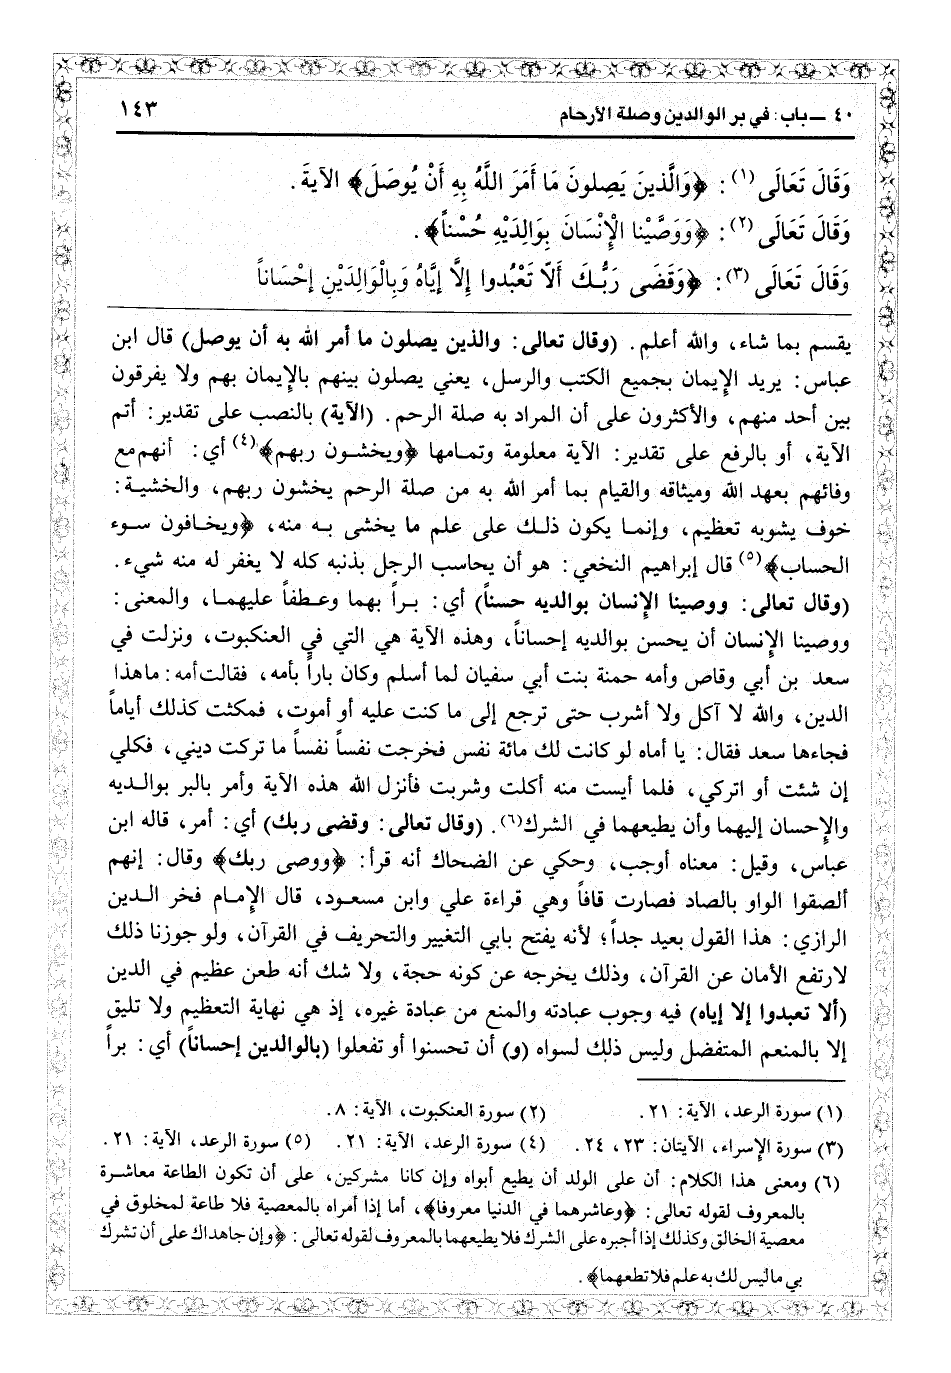 ٤٠ ــ باب: في بر الوالدين وصلة الأرحام ١٤٣
وَقَالَ تَعَالَى (١): ﴿وَالَّذِينَ يَصِلونَ مَا أَمَرَ اللَّهُ بِهِ أَنْ يُوصَلَ﴾ الآيةَ.
وَقَالَ تَعَالَى (٢): ﴿وَوَصَّيْنا الْإِنْسَانَ بِوَالِدَيْهِ حُسْناً﴾.
وَقَالَ تَعَالَى (٣): ﴿وَقَضَى رَبُّكَ أَلاّ تَعْبُدوا إِلاَّ إيَّاهُ وَبِالْوَالِدَيْنِ إحْسَاناً
يقسم بما شاء، والله أعلم. (وقال تعالى: والذين يصلون ما أمر الله به أن يوصل) قال ابن
عباس: يريد الإيمان بجميع الكتب والرسل، يعني يصلون بينهم بالإيمان بهم ولا يفرقون
بين أحد منهم، والأكثرون على أن المراد به صلة الرحم. (الآية) بالنصب على تقدير: أتم
الآية، أو بالرفع على تقدير: الآية معلومة وتمامها ﴿ويخشون ربهم﴾(٤) أي: أنهم مع
وفائهم بعهد الله وميثاقه والقيام بما أمر الله به من صلة الرحم يخشون ربهم، والخشية:
خوف يشوبه تعظيم، وإنما يكون ذلك على علم ما يخشى به منه، ﴿ويخافون سوء
الحساب﴾(٥) قال إبراهيم النخعي: هو أن يحاسب الرجل بذنبه كله لا يغفر له منه شيء.
(وقال تعالى: ووصينا الإنسان بوالديه حسناً) أي: براً بهما وعطفاً عليهما، والمعنى:
ووصينا الإنسان أن يحسن بوالديه إحساناً، وهذه الآية هي التي في العنكبوت، ونزلت في
سعد بن أبي وقاص وأمه حمنة بنت أبي سفيان لما أسلم وكان باراً بأمه، فقالت أمه: ما هذا
الدين، والله لا آكل ولا أشرب حتى ترجع إلى ما كنت عليه أو أموت، فمكثت كذلك أياماً
فجاءها سعد فقال: يا أماه لو كانت لك مائة نفس فخرجت نفساً نفساً ما تركت ديني، فكلي
إن شئت أو اتركي، فلما أيست منه أكلت وشربت فأنزل الله هذه الآية وأمر بالبر بوالديه
والإحسان إليهما وأن يطيعهما في الشرك(٦). (وقال تعالى: وقضى ربك) أي: أمر، قاله ابن
عباس، وقيل: معناه أوجب، وحكي عن الضحاك أنه قرأ: ﴿ووصى ربك﴾ وقال: إنهم
ألصقوا الواو بالصاد فصارت قافاً وهي قراءة علي وابن مسعود، قال الإمام فخر الدين
الرازي: هذا القول بعيد جداً؛ لأنه يفتح بابي التغيير والتحريف في القرآن، ولو جوزنا ذلك
لارتفع الأمان عن القرآن، وذلك يخرجه عن كونه حجة، ولا شك أنه طعن عظيم في الدين
(ألا تعبدوا إلا إياه) فيه وجوب عبادته والمنع من عبادة غيره، إذ هي نهاية التعظيم ولا تليق
إلا بالمنعم المتفضل وليس ذلك لسواه (و) أن تحسنوا أو تفعلوا (بالوالدين إحساناً) أي: براً
(١) سورة الرعد، الآية: ٢١. (٢) سورة العنكبوت، الآية: ٨.
(٣) سورة الإسراء، الآيتان: ٢٣، ٢٤. (٤) سورة الرعد، الآية: ٢١. (٥) سورة الرعد، الآية: ٢١.
(٦) ومعنى هذا الكلام: أن على الولد أن يطيع أبواه وإن كانا مشركين، على أن تكون الطاعة معاشرة
بالمعروف لقوله تعالى: ﴿وعاشرهما في الدنيا معروفا﴾، أما إذا أمراه بالمعصية فلا طاعة لمخلوق في
معصية الخالق وكذلك إذا أجبره على الشرك فلا يطيعهما بالمعروف لقوله تعالى: ﴿وإن جاهداك على أن تشرك
بي ما ليس لك به علم فلا تطعهما﴾.